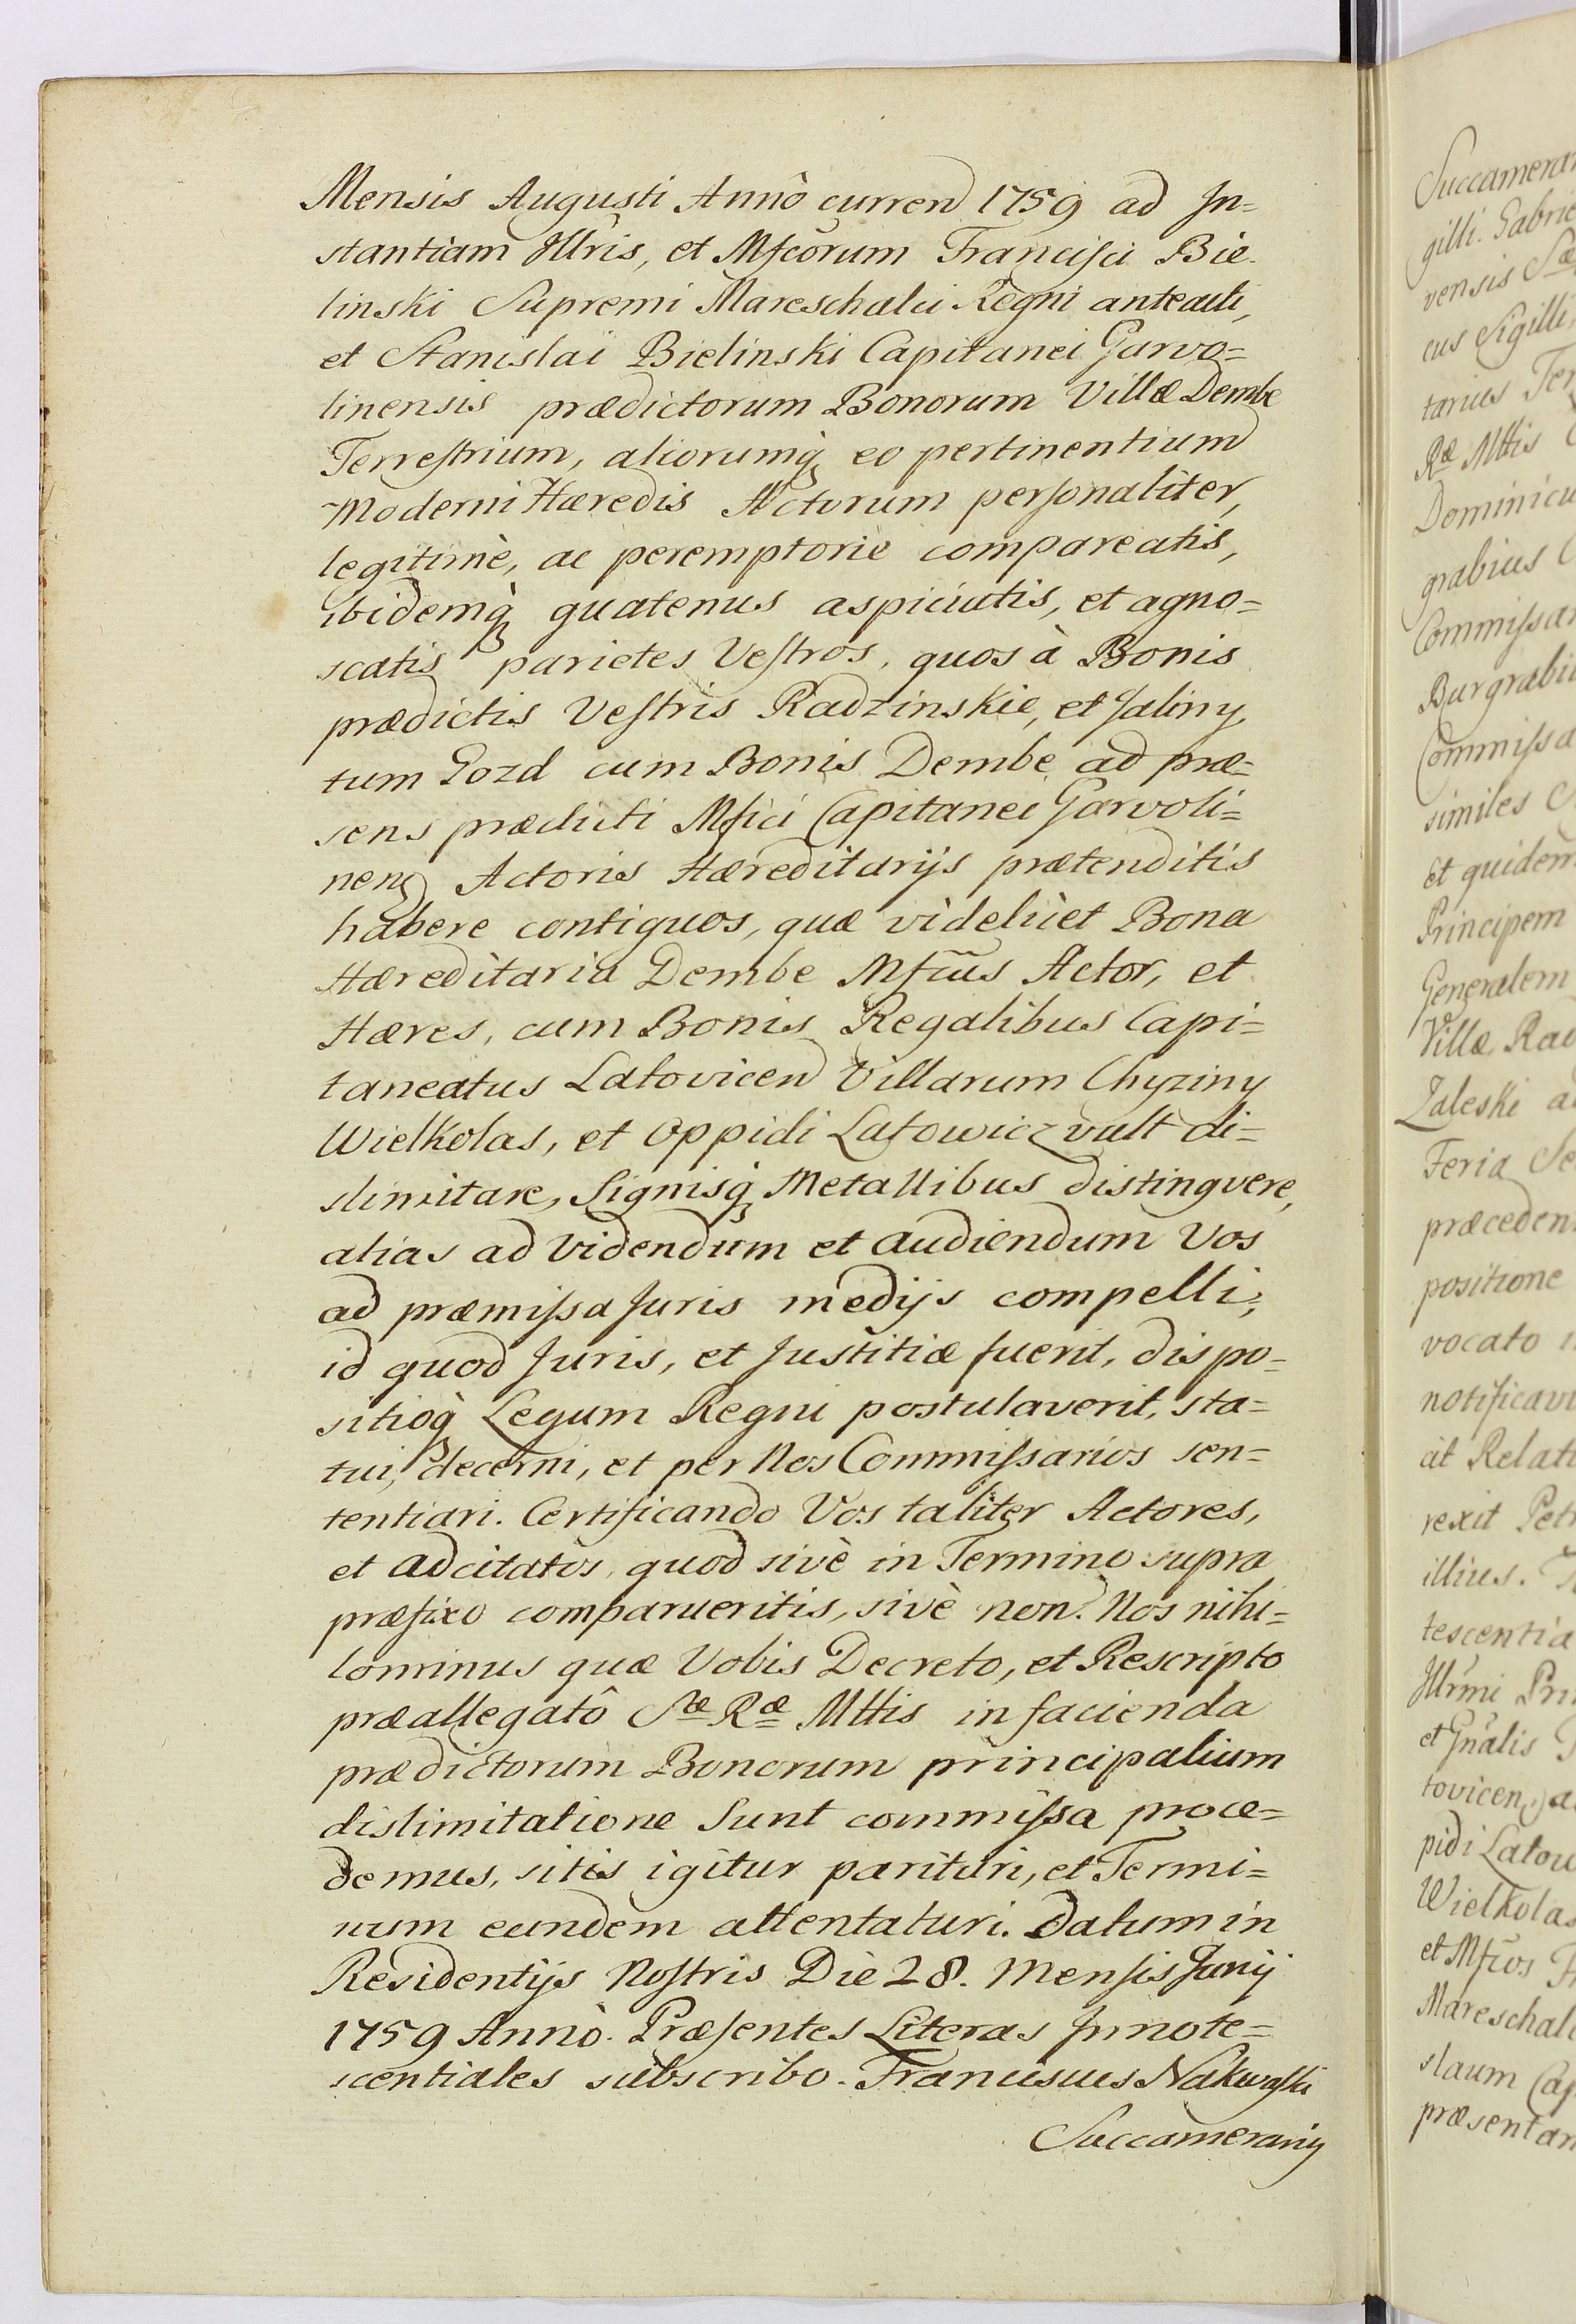 Mensis Augusti Annô curren 1759 ad In=
stantiam Illris, et Mfcorum Francisci Bie-
linski Supremi Mareschalci Regni anteacti,
et Stanislai Bielinski Capitanei Garvo=
linensis prædictorum Bonorum Villæ Dembe
Terrestrium, aliorumq eo pertinentium
Moderni Hæredis Actorum personaliter,
legitimè, ac peremptoriè compareatis,
ibidemq̀ quatenus aspiciatis, et agno=
scatis parietes Vestros, quos à Bonis
prædictis Vestris Radzinskie, et Jaliny
tum Gozd cum Bonis Dembe ad præ=
sens prædicti Mfici Capitanei Garvoli=
nen Actoris Hæreditarijs prætenditis
habere contiguos, quæ videlicet Bona
Hæreditaria Dembe Mfcus Actor, et
Hæres, cum Bonis Regalibus Capi=
taneatus Latovicen Villarum Chyziny
Wielkolas, et Oppidi Latowicz vult di=
slimitare, Signisq̀ Metallibus distingvere,
alias ad videndum et audiendum Vos
ad præmissa Juris medijs compelli,
id quod Juris, et Justitiæ fuerit, dispo=
sitioq̀ Legum Regni postulaverit, sta=
tui, decerni, et per Nos Commissarios sen=
tentiari. Certificando Vos taliter Actores,
et adcitatos, quod sivè in Termino supra
præfixo comparueritis, sivè non. Nos nihi=
lominus quæ Vobis Decreto, et Rescripto
præallegatô Sæ Ræ Mttis in facienda
prædictorum Bonorum principalium
dislimitatione Sunt commissa proce=
demus, sitis igitur parituri, et Termi=
num eundem attentaturi. Datum in
Residentijs Nostris Die 28. Mensis Junij
1759 Annò. Præsentes Literas Innote=
scentiales subscribo. Franciscus Nakwaski
Succamerarius
Succamerar
gilli. Gabrie
vensis Sæ
cus Sigilli,
tarius Ter
Ræ Mttis
Dominicu
grabius C
Commissar
Burgrabiu
Commissa
similes
Et quidem
Principem
Generalem
Villæ Rad
Zaleski a
Feria Se
præceden
positione
vocato i
notificavi
cit Relati
rexit Petr
illius. T
tescentia
Illrmi Pri
et Gnalis
tovicen, a
pidi Latow
Wielkolas
et Mfcos Fr
Mareschalc
slaum Cap
præsentan